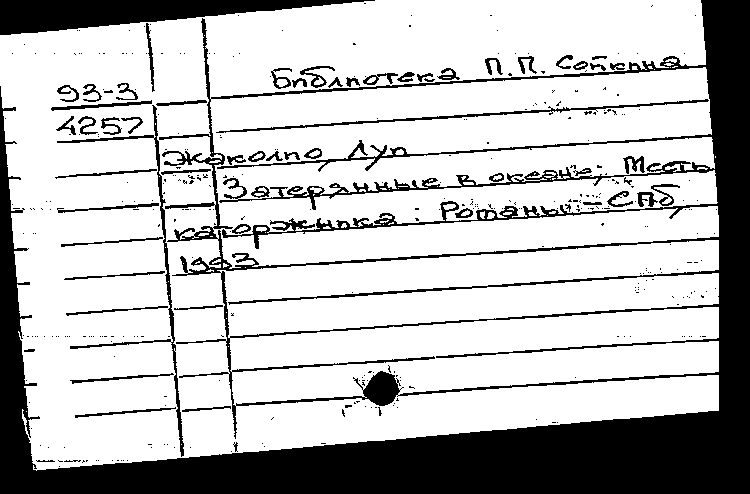 93-3
4257
Библиотека П.П. Сойкина
Жаколио, Луи
Затерянные в океане; Месть
каторжника: Романы - СПб,
1993